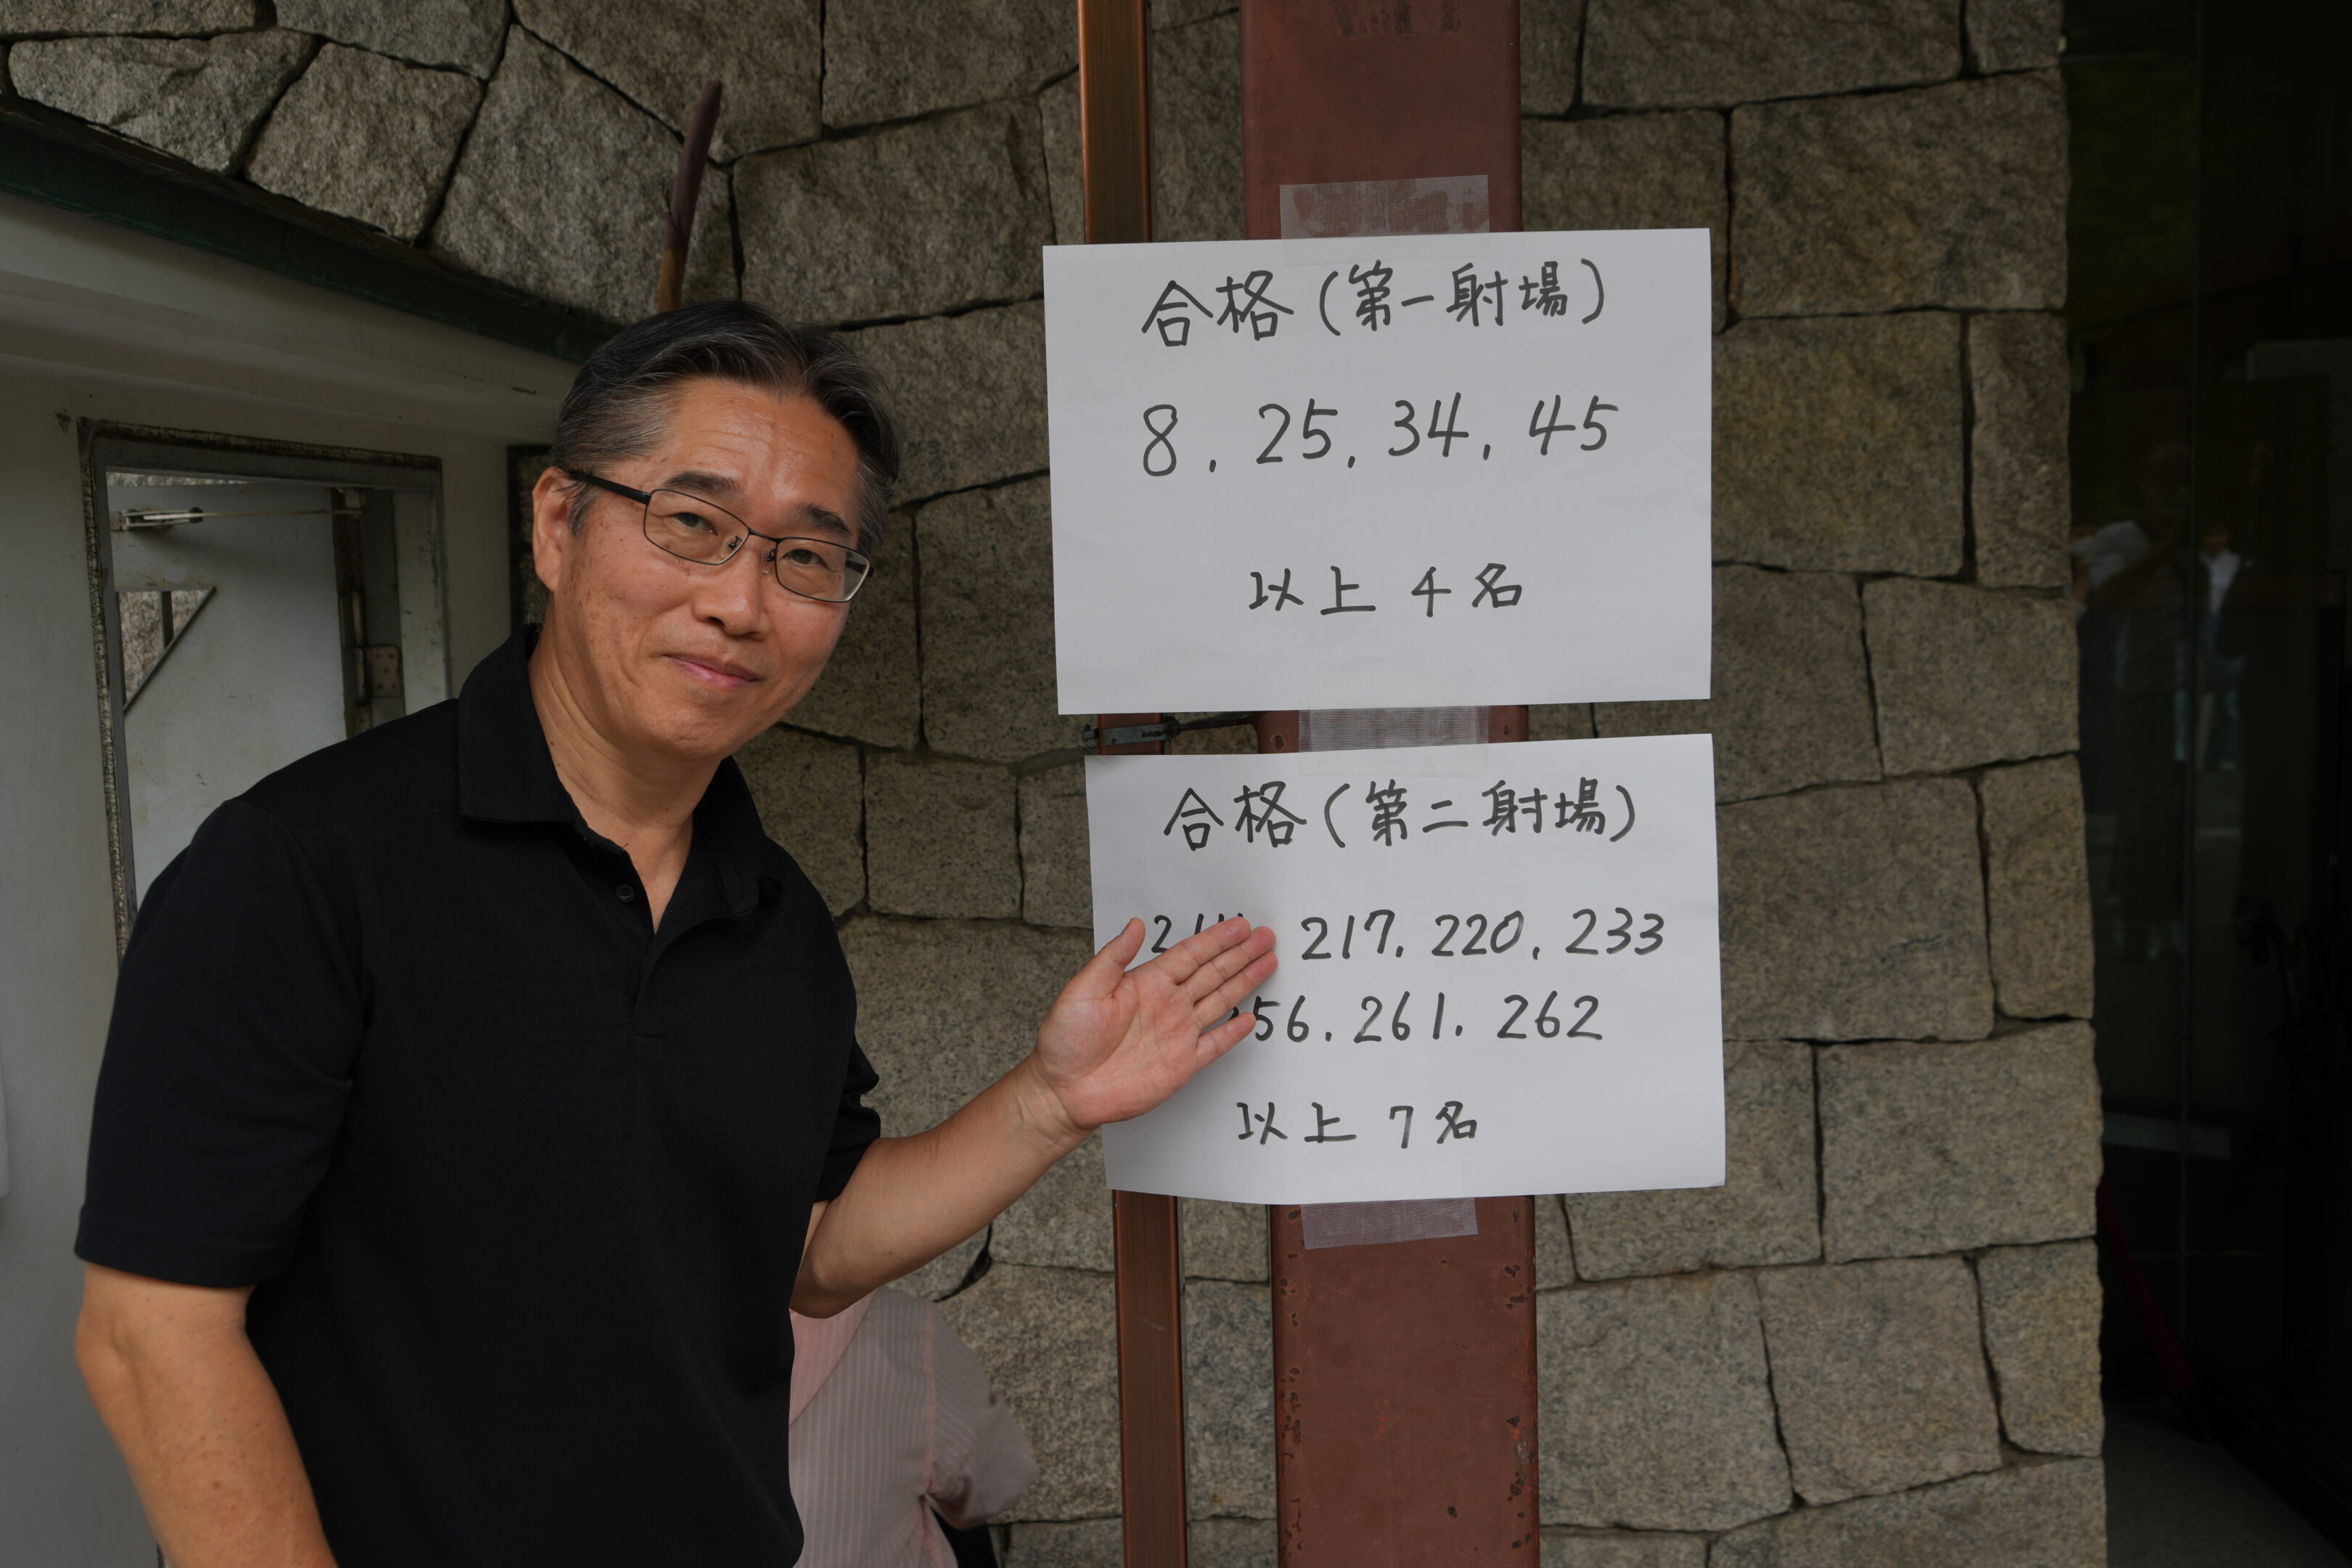 合格(第一射場)
8, 25, 34, 45
以上 4名
合格(第二射場)
217, 220, 233
261, 262
以上 7名